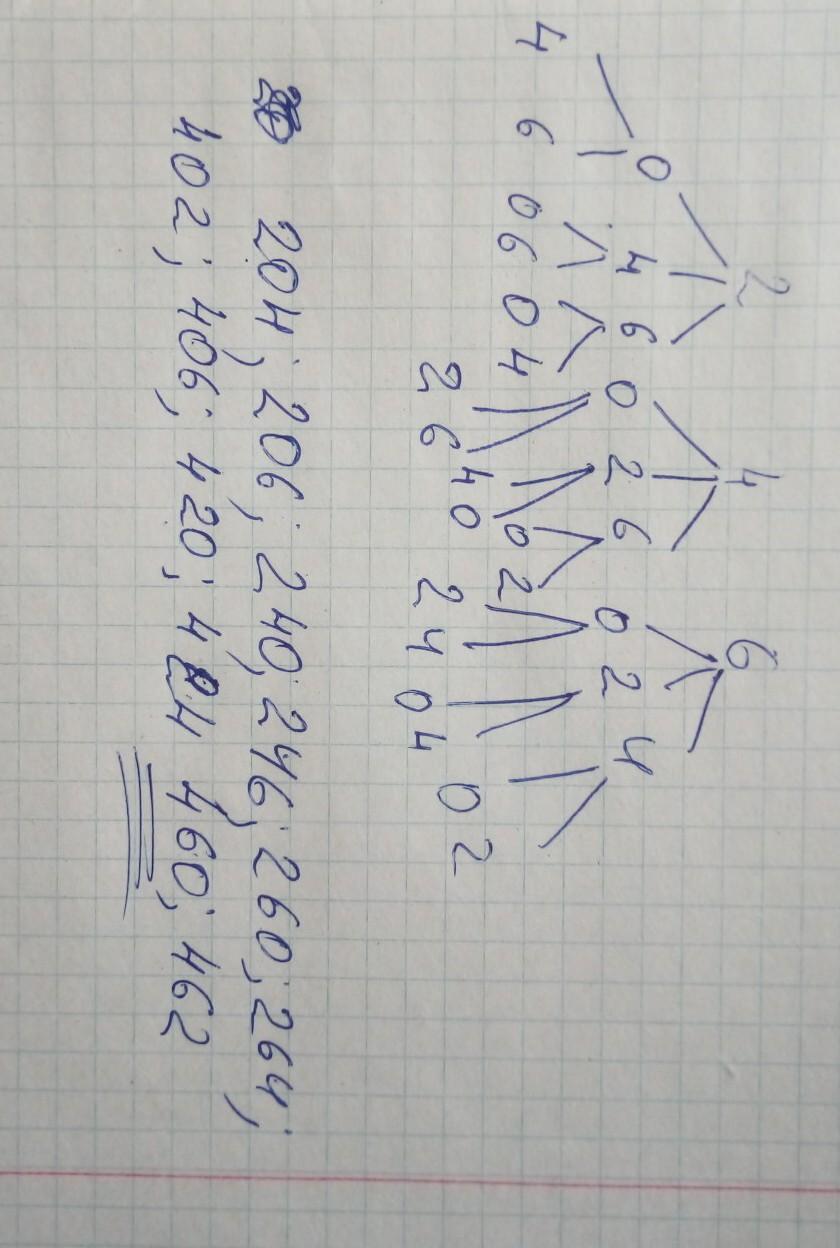 2 4 6
0 4 6 0 2 6 0 2 4
4 6 0 6 0 4 2 6 4 0 0 2 2 4 0 4 0 2
204; 206; 240; 246; 260; 264;
402; 406; 420; 424 460; 462